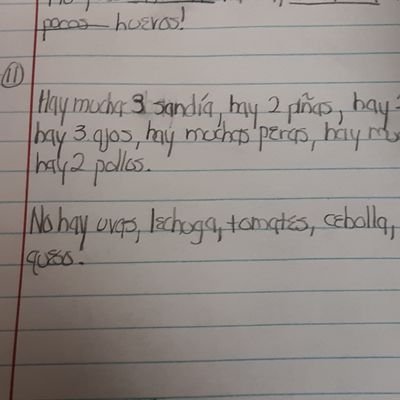 pocos hueros!
11
Hay mucha 3 sandía, hay 2 piñas, hay
hay 3 ajos, hay muchas peras, hay
hay 2 pollos.
No hay uvas, lechoga, tomates, cebolla,
queso.